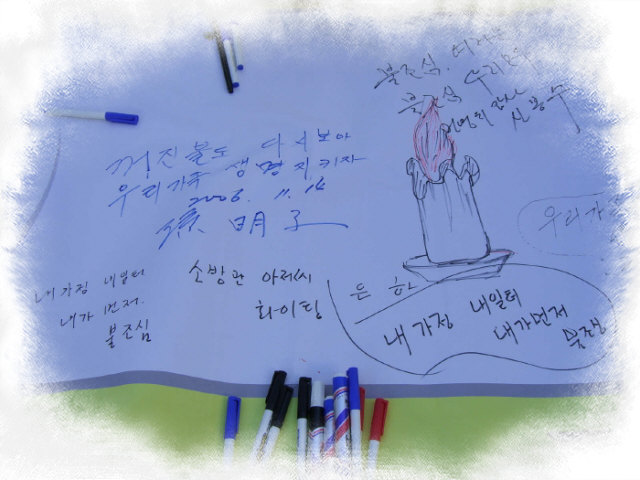 불조심.
불조심 우리모두
신봉수
꺼진불도 다시보아
우리가족 생명지키자
2006. 11. 14
孫明子
우리가
내가정 내일터
내가 먼저.
불조심
소방관 아저씨
화이팅
은하
내가정 내일터
내가먼저